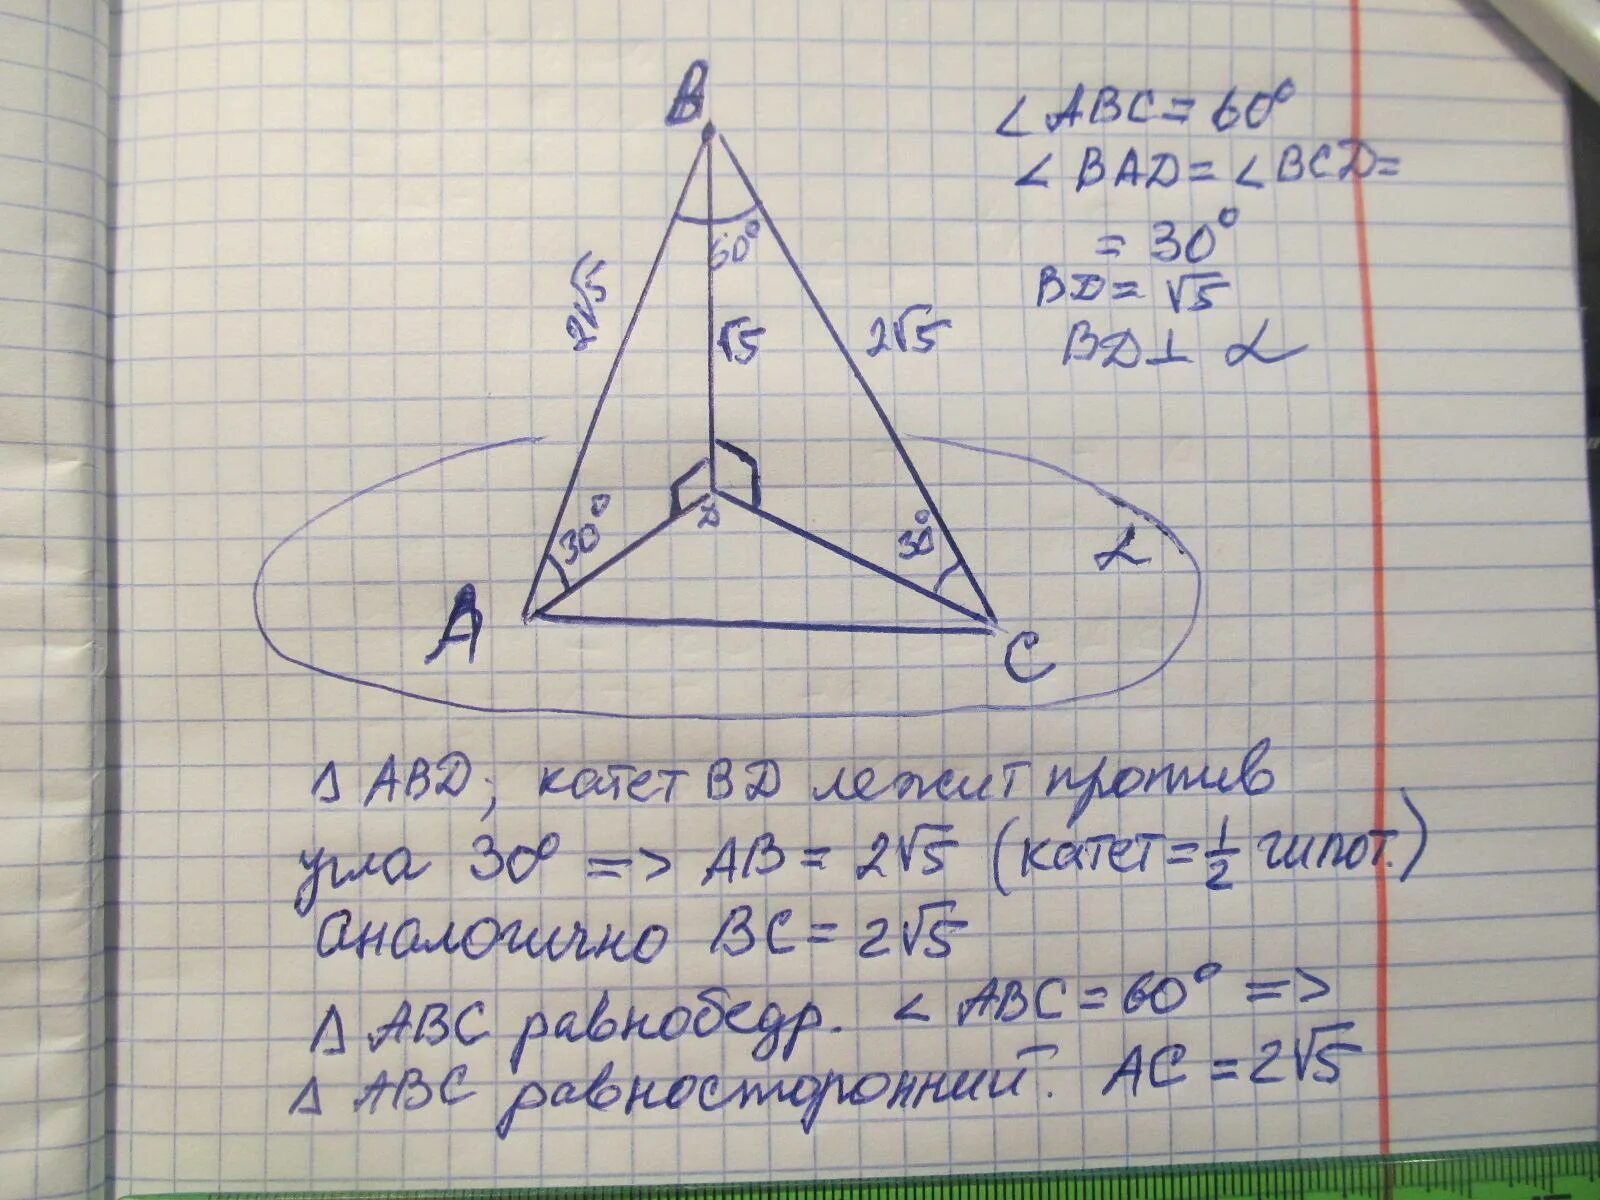 B
∠ ABC = 60°
∠ BAD = ∠ BCD =
= 30°
BD = √5
BD ⊥ α
60°
2√5
√5
2√5
30°
D
30°
α
A
C
Δ ABD; катет BD лежит против
угла 30° => AB = 2√5 (катет = 1/2 гипот.)
Аналогично BC = 2√5
Δ ABC равнобедр. ∠ ABC = 60° =>
Δ ABC равносторонний. AC = 2√5